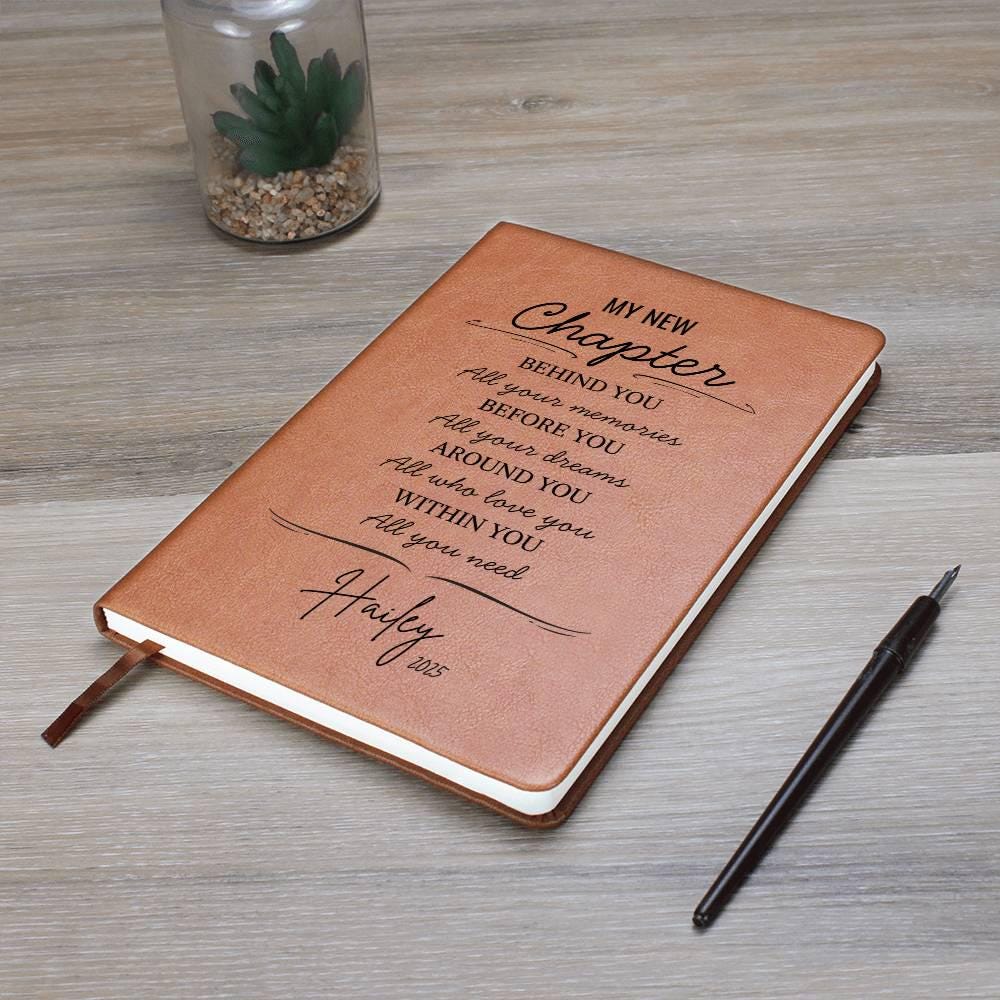 MY NEW
Chapter
BEHIND YOU
All your memories
BEFORE YOU
All your dreams
AROUND YOU
All who love you
WITHIN YOU
All you need
Hailey
2025